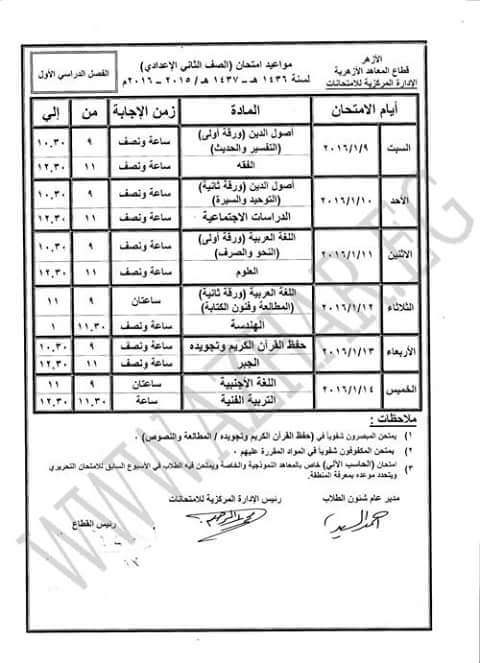 الأزهر
قطاع المعاهد الأزهرية
الإدارة المركزية للامتحانات
مواعيد امتحان (الصف الثاني الإعدادي)
لسنة ١٤٣٦ هـ – ١٤٣٧ هـ / ٢٠١٥ – ٢٠١٦م
الفصل الدراسي الأول
أيام الامتحان المادة زمن الإجابة من إلي
السبت ٢٠١٦/١/٩ أصول الدين (ورقة أولى) (التفسير والحديث) ساعة ونصف ٩ ١٠,٣٠
الفقه ساعة ونصف ١١ ١٢,٣٠
الأحد ٢٠١٦/١/١٠ أصول الدين (ورقة ثانية) (التوحيد والسيرة) ساعة ونصف ٩ ١٠,٣٠
الدراسات الاجتماعية ساعة ونصف ١١ ١٢,٣٠
الاثنين ٢٠١٦/١/١١ اللغة العربية (ورقة أولى) (النحو والصرف) ساعة ونصف ٩ ١٠,٣٠
العلوم ساعة ونصف ١١ ١٢,٣٠
الثلاثاء ٢٠١٦/١/١٢ اللغة العربية (ورقة ثانية) (المطالعة وفنون الكتابة) ساعتان ٩ ١١
الهندسة ساعة ونصف ١١,٣٠ ١
الأربعاء ٢٠١٦/١/١٣ حفظ القرآن الكريم وتجويده ساعة ونصف ٩ ١٠,٣٠
الجبر ساعة ونصف ١١ ١٢,٣٠
الخميس ٢٠١٦/١/١٤ اللغة الأجنبية ساعتان ٩ ١١
التربية الفنية ساعة ١١,٣٠ ١٢,٣٠
ملاحظات :
١) يمتحن المبصرون شفوياً في (حفظ القرآن الكريم وتجويده / المطالعة والنصوص) .
٢) يمتحن المكفوفون شفوياً في المواد المقررة عليهم .
٣) امتحان (الحاسب الآلي) خاص بالمعاهد النموذجية والخاصة ويمتحن فيه الطلاب في الأسبوع السابق للامتحان التحريري
ويتحدد موعده بمعرفة المنطقة.
مدير عام شئون الطلاب
رئيس الإدارة المركزية للامتحانات
رئيس القطاع
أحمد السيد